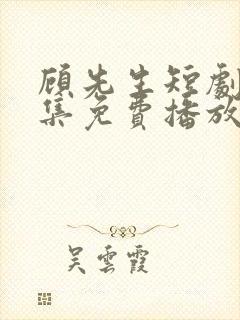 顾先生短劇
集免費播放
吴雲霞